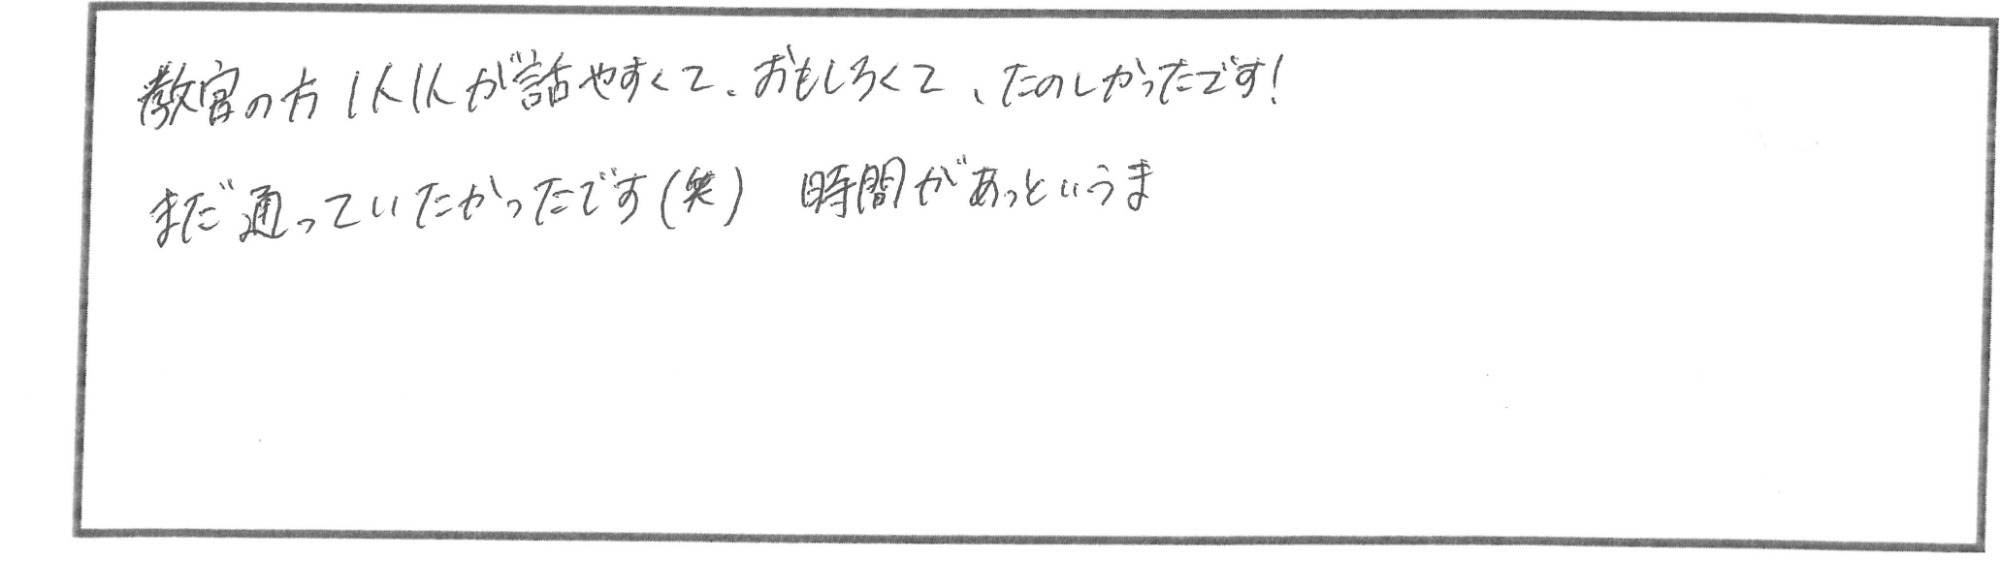 教官の方1人1人が話やすくて、おもしろくて、たのしかったです!
まだ通っていたかったです(笑) 時間があっというま